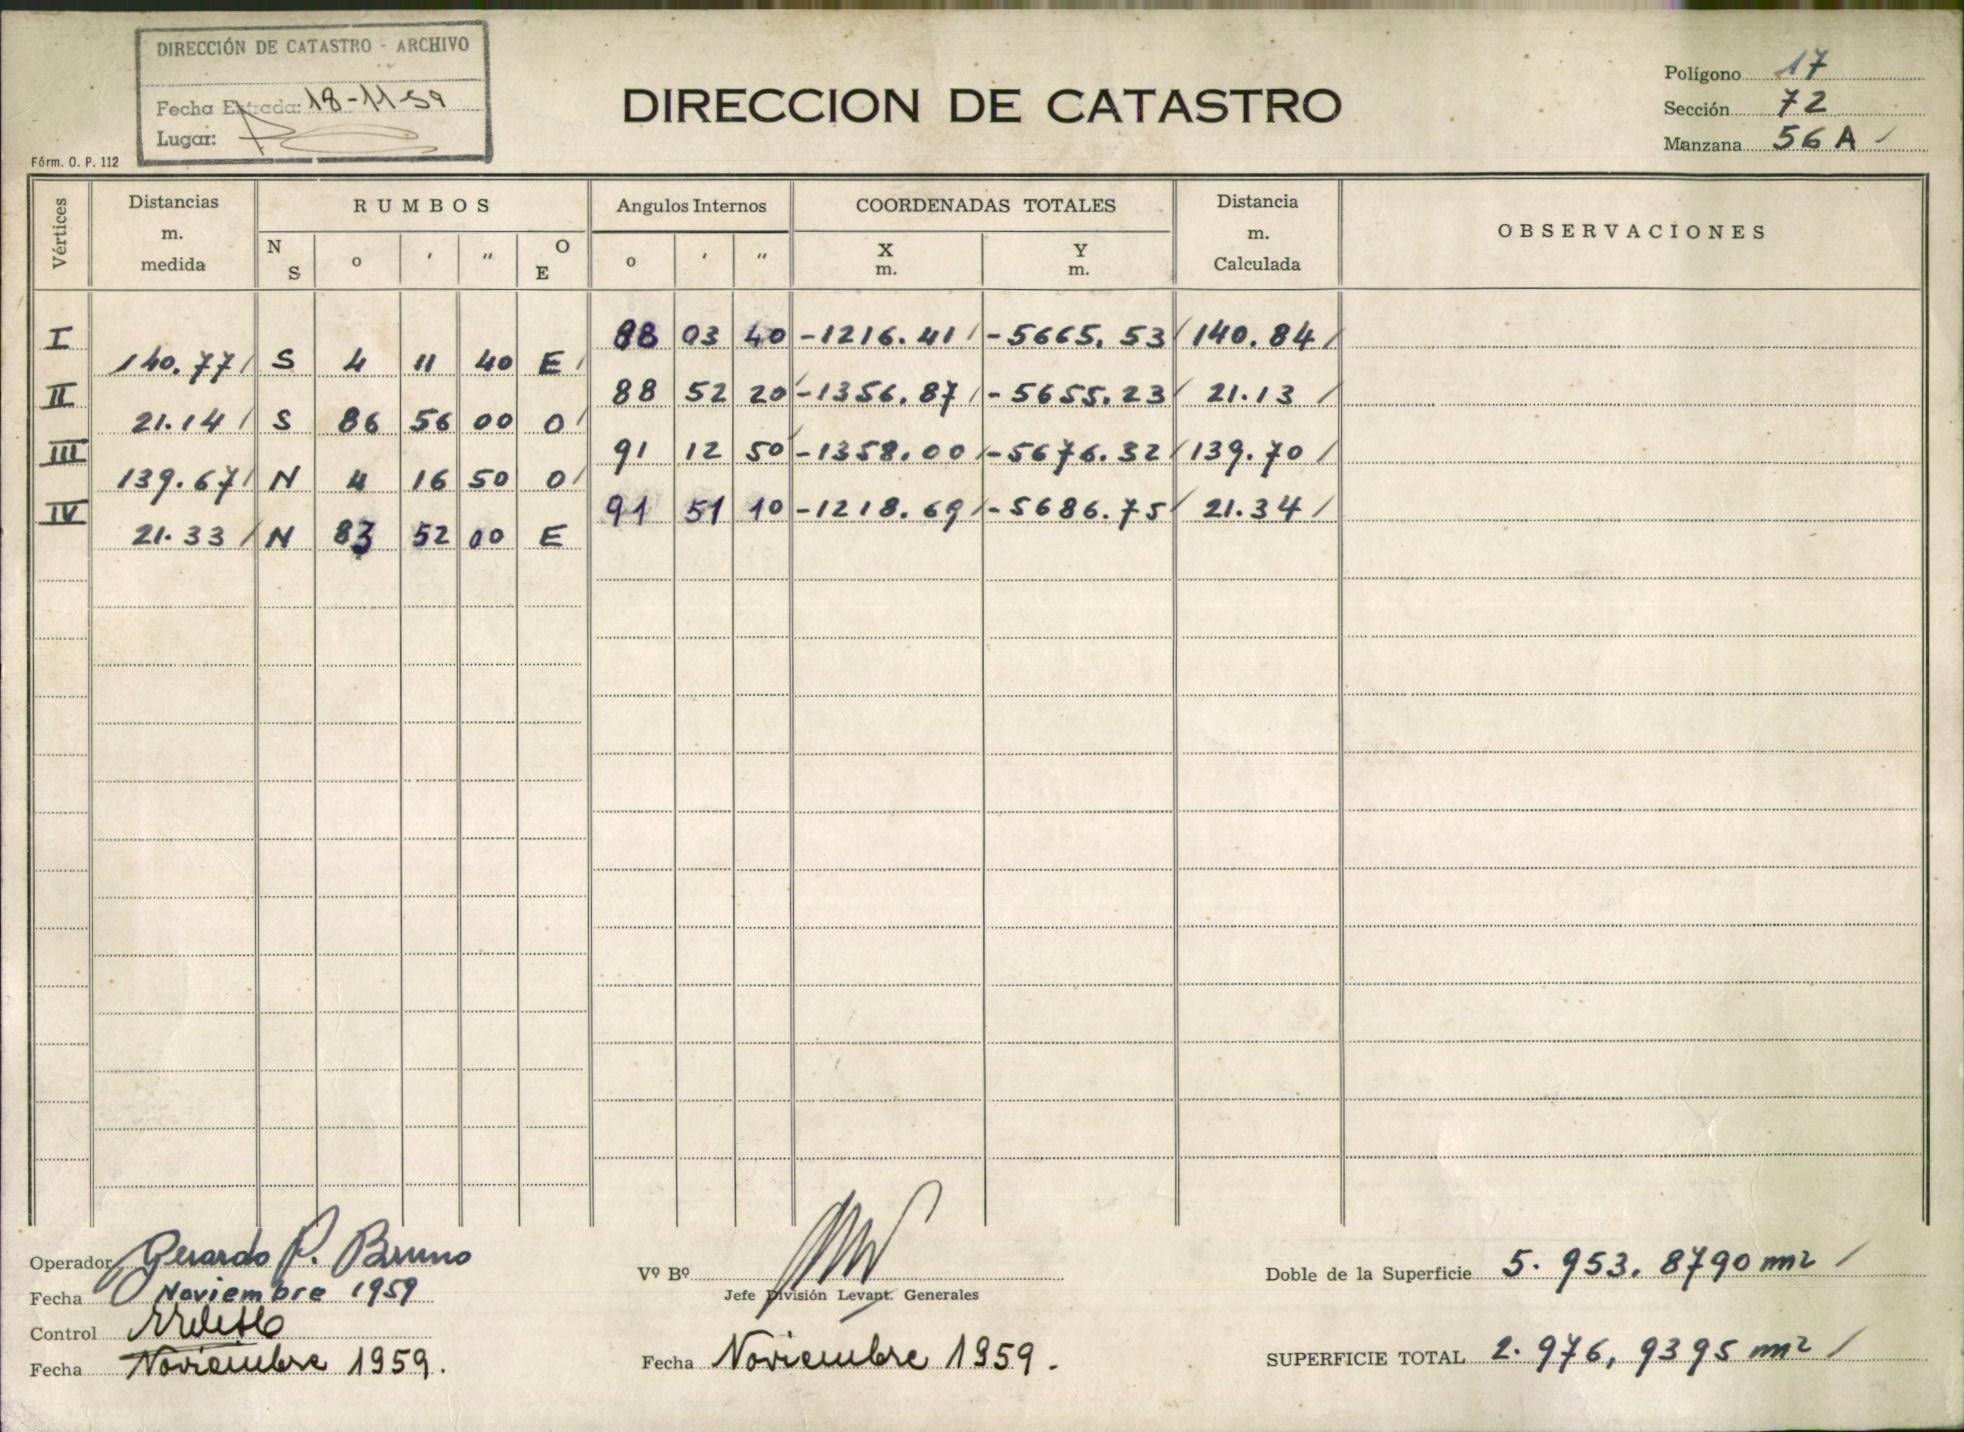 DIRECCIÓN DE CATASTRO - ARCHIVO
Fecha Entrada: 18-11-59
Lugar:
Fórm. O. P. 112
DIRECCION DE CATASTRO
Polígono 17
Sección 72
Manzana 56 A /
Vértices
Distancias m. medida
RUMBOS
N S o ′ ″ O E
Angulos Internos
o ′ ″
COORDENADAS TOTALES
X m. Y m.
Distancia m. Calculada
OBSERVACIONES
I 88 03 40 -1216.41 / -5665.53 / 140.84 /
140.77 / S 4 11 40 E /
II 88 52 20 -1356.87 / -5655.23 / 21.13 /
21.14 / S 86 56 00 O /
III 91 12 50 -1358.00 / -5676.32 / 139.70 /
139.67 / N 4 16 50 O /
IV 91 51 10 -1218.69 / -5686.75 / 21.34 /
21.33 / N 83 52 00 E
Operador Gerardo P. Bruno
Fecha Noviembre 1959
Control
Fecha Noviembre 1959.
Vº Bº
Jefe División Levant. Generales
Fecha Noviembre 1959.
Doble de la Superficie 5.953,8790 m2 /
SUPERFICIE TOTAL 2.976,9395 m2 /